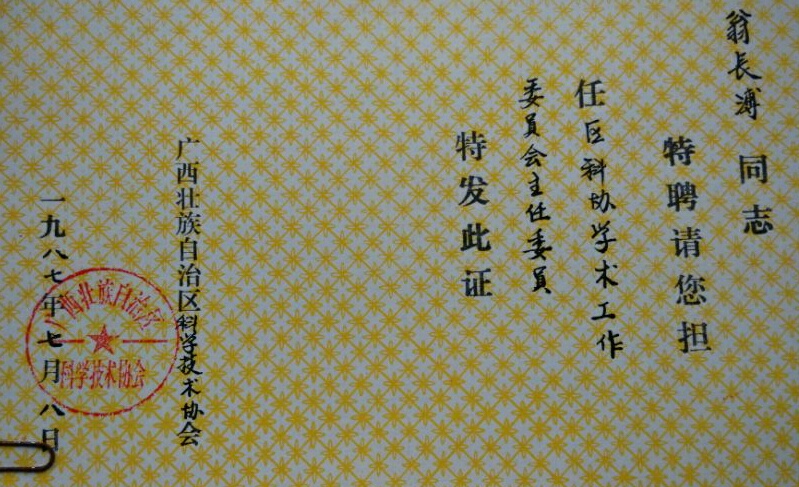 翁长溥 同志
特聘请您担
任区科协学术工作
委员会主任委员
特发此证
广西壮族自治区科学技术协会
一九八七年七月八日
广西壮族自治区
科学技术协会